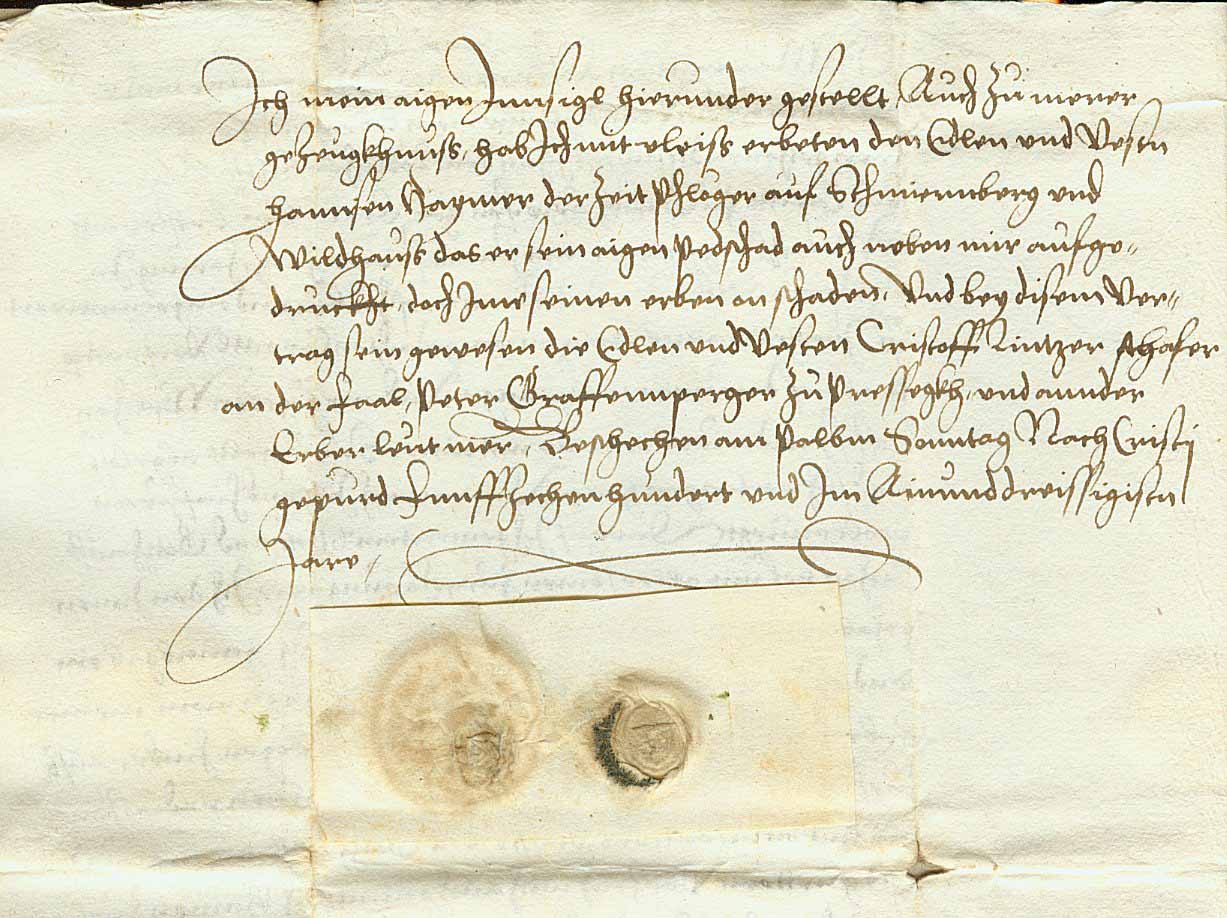 Ich mein aigen Innsigl hierunder gestellt, Auch zu merer
gezeugkhnuss, hab Ich mit vleiss erbeten den Edlen und Vestn
Hannsen der Zeit Phleger auf Schmiernberg und
Wildhauss das er sein aigen Pedschad auch neben mir aufge-
druckht, doch Ime seinen erben on schaden, Und bey disem Ver-
trag sein gewesen die Edlen und Vesten Cristoff
an der Saal, Peter Graffennperger zu Pressegkh, und annder
Erber leut mer, Beschechen am Palbm Sonntag Nach Cristj
gepurd Funffzechenhundert und Im Ainunddreissigistn
Jare,